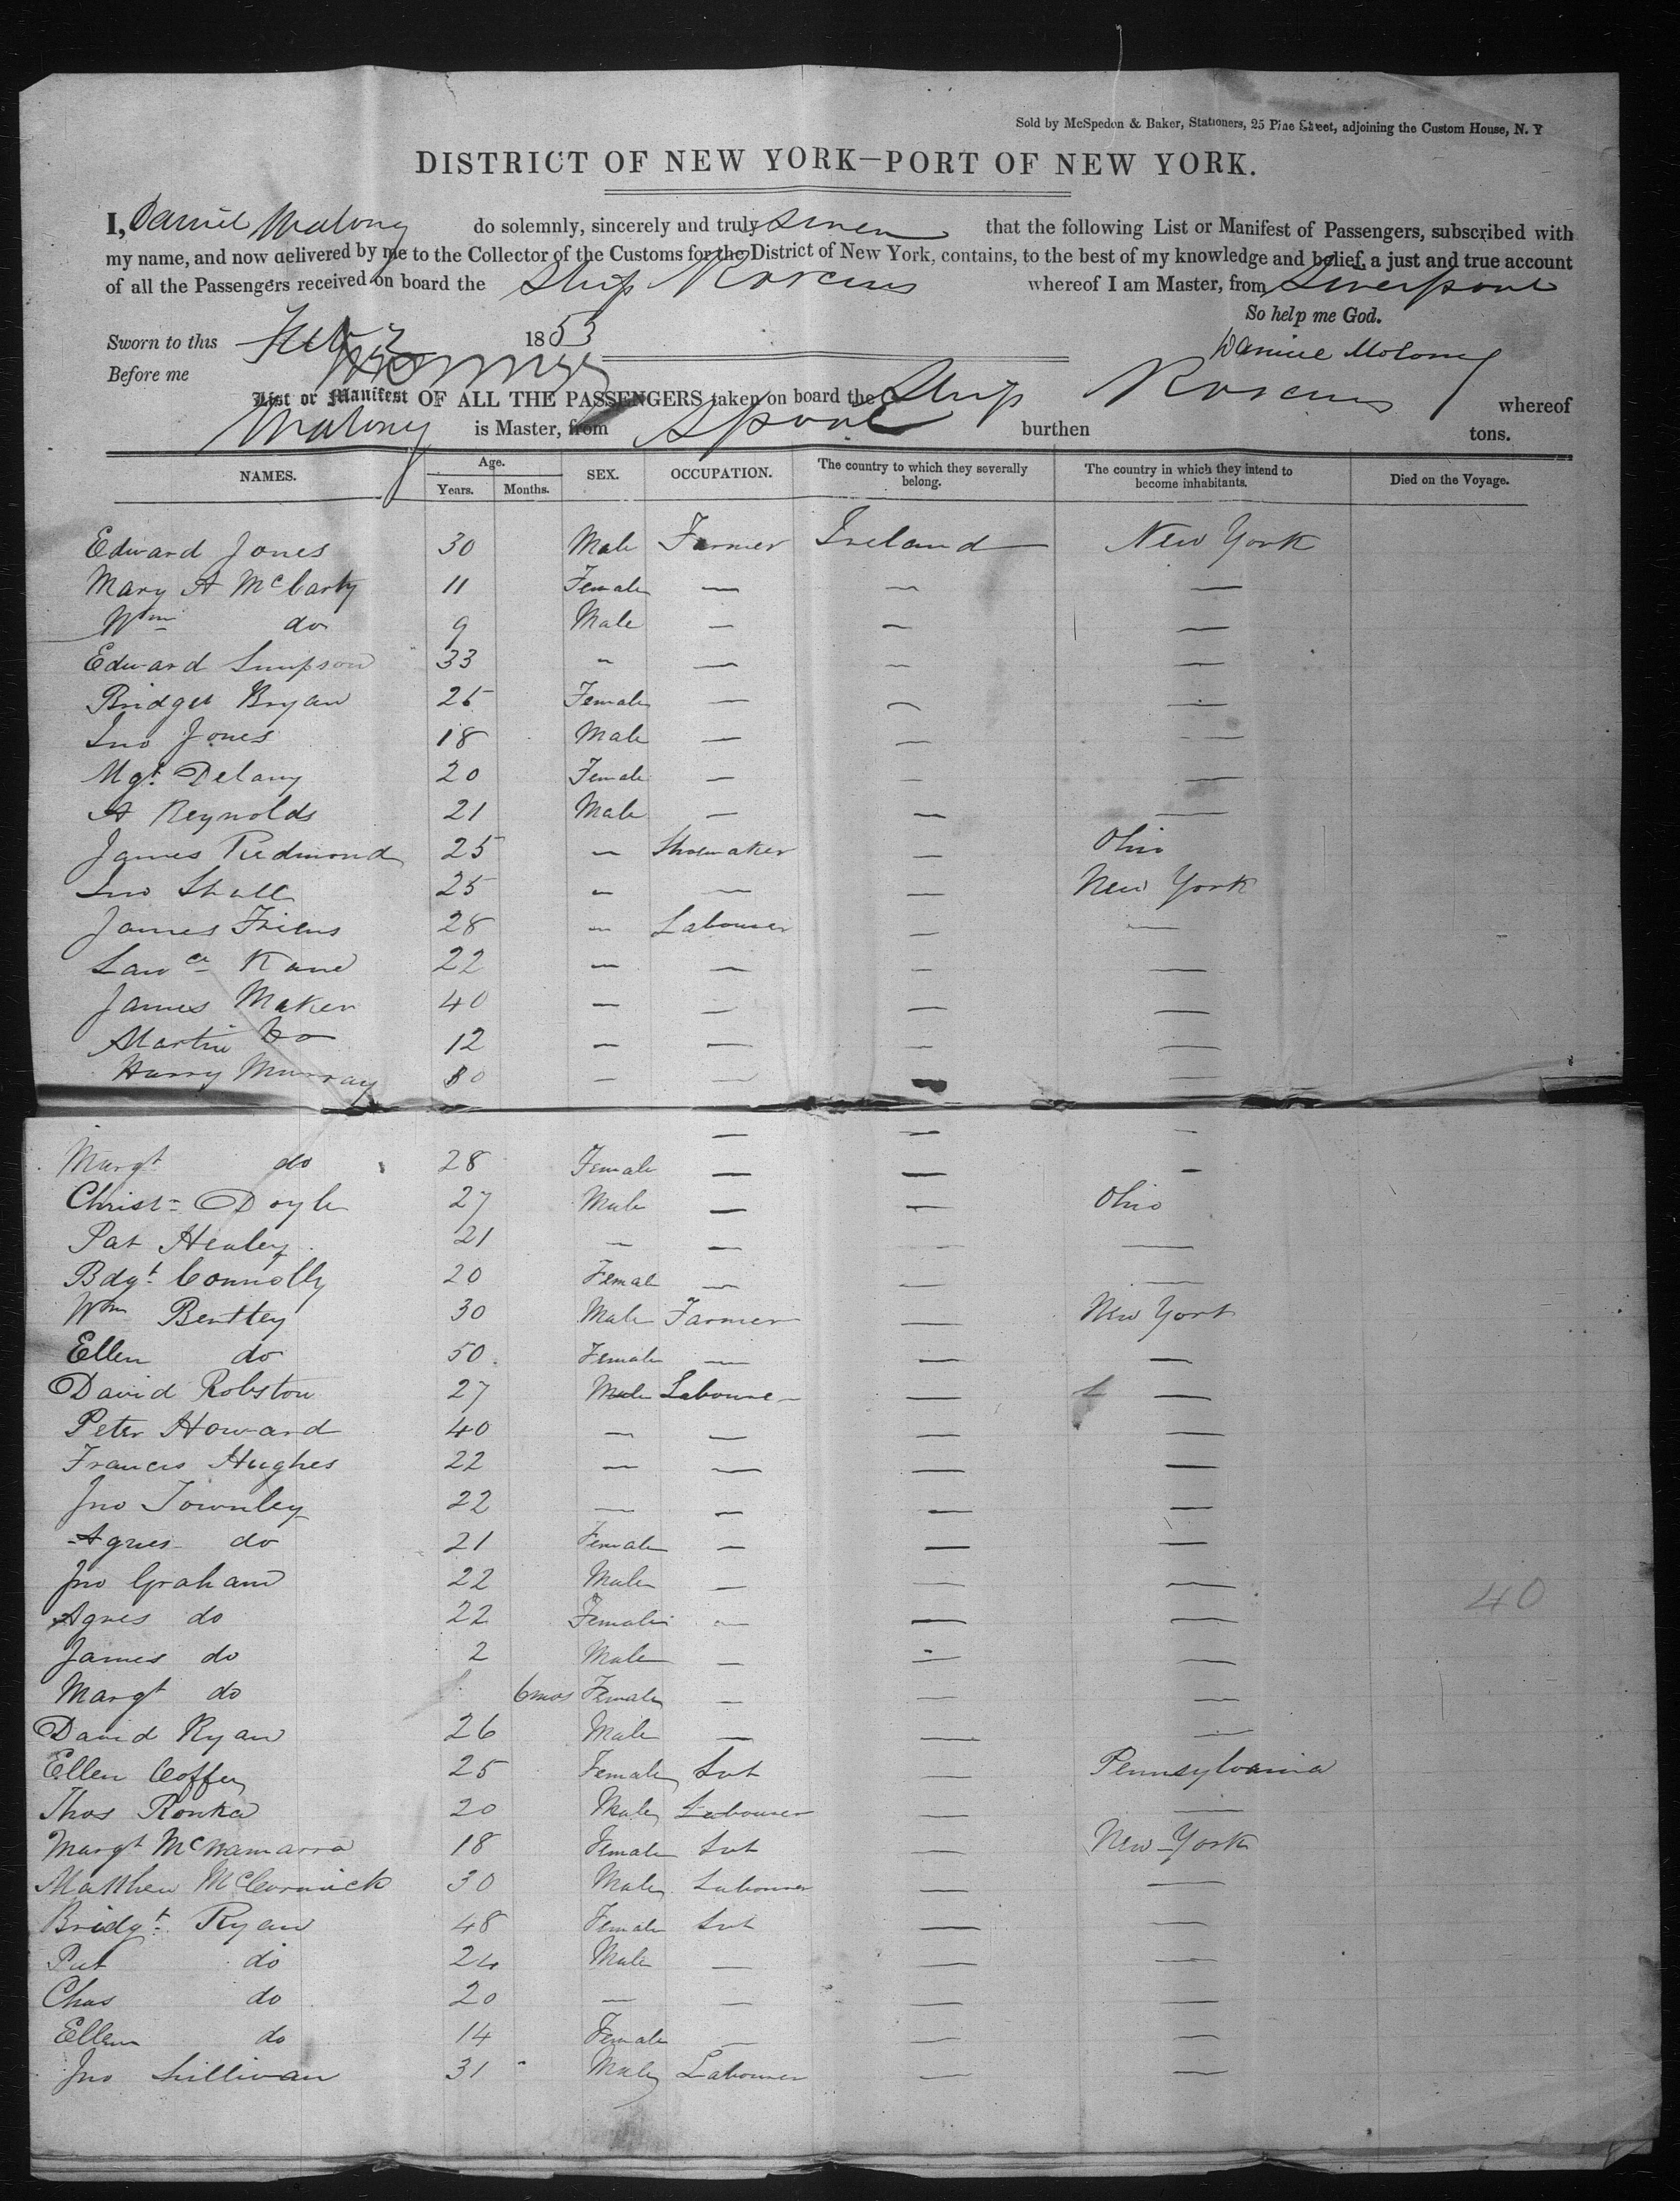 Sold by McSpedon & Baker, Stationers, 25 Pine Street, adjoining the Custom House, N. Y
DISTRICT OF NEW YORK—PORT OF NEW YORK.
I, Daniel Malony do solemnly, sincerely and truly swear that the following List or Manifest of Passengers, subscribed with
my name, and now delivered by me to the Collector of the Customs for the District of New York, contains, to the best of my knowledge and belief, a just and true account
of all the Passengers received on board the Ship Roscius whereof I am Master, from Liverpool
So help me God.
Sworn to this 2 1853
Daniel Molony
Before me
List or Manifest OF ALL THE PASSENGERS taken on board the Ship Roscius whereof
Malony is Master, from Lpool burthen tons.
NAMES. Age. Years. Months. SEX. OCCUPATION. The country to which they severally belong. The country in which they intend to become inhabitants. Died on the Voyage.
Edward Jones 30 Male Farmer Ireland New York
Mary A McCarty 11 Female — — —
Wm do 9 Male — — —
Edward Simpson 33 — — — —
Bridget Bryan 25 Female — — —
Jno Jones 18 Male — — —
Mgt Delany 20 Female — — —
A Reynolds 21 Male — — —
James Redmond 25 — Shoemaker — Ohio
Jno 25 — — — New York
James 28 — Labourer — —
Lawce Kane 22 — — — —
James Maker 40 — — — —
Martin Do 12 — — — —
Harry Murray 30 — — — —
— — —
Margt do 28 Female — — —
Christ Doyle 27 Male — — Ohio
Pat Healey 21 — — — —
Bdgt Connolly 20 Female — — —
Wm Bentley 30 Male Farmer — New York
Ellen do 50 Female — — —
David Robston 27 Male Labourer — —
Peter Howard 40 — — — —
Francis Hughes 22 — — — —
Jno Townley 22 — — — —
Agnes do 21 Female — — —
Jno Graham 22 Male — — —
40
Agnes do 22 Female — — —
James do 2 Male — — —
Margt do 6 mos Female — — —
David Ryan 26 Male — — —
Ellen Coffey 25 Female Svt — Pennsylvania
Thos Ronka 20 Male Labourer — —
Margt McNamarra 18 Female Svt — New York
Matthew McCormick 30 Male Labourer — —
Bridgt Ryan 48 Female Svt — —
Pat do 24 Male — — —
Chas do 20 — — — —
Ellen do 14 Female — — —
Jno Sullivan 31 Male Labourer — —